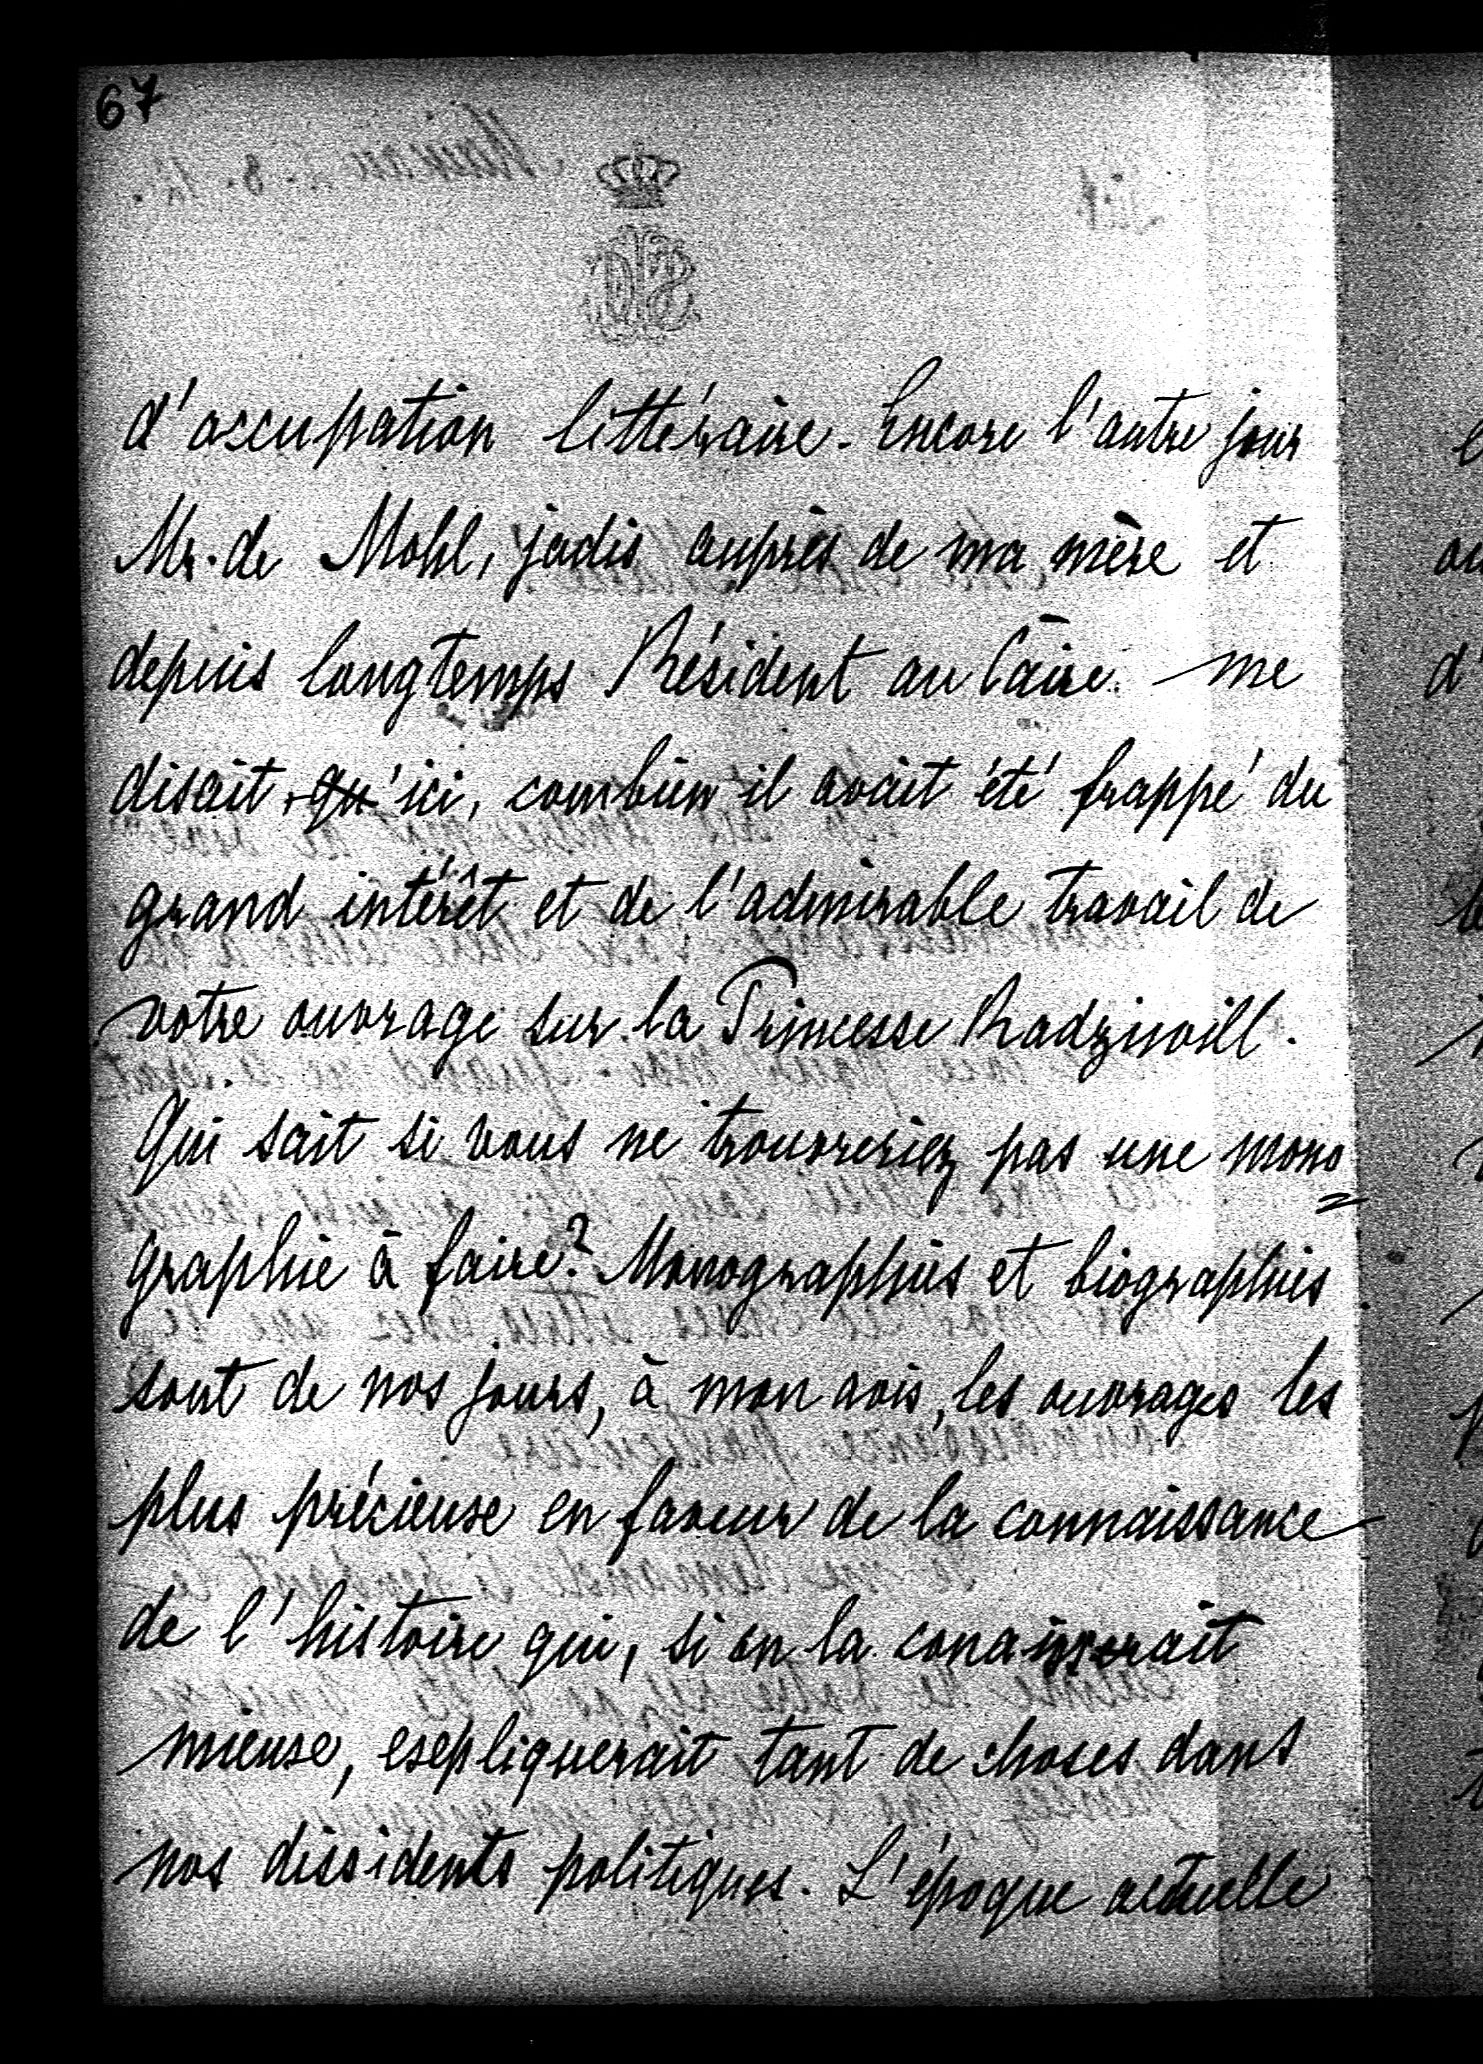 67
d'occupation littéraire. Encore l'autre jour
Mr. de Mohl, jadis auprès de ma mère et
depuis longtemps Résident au Caire me
disait, qu'ici, combien il avait été frappé du
grand intérêt et de l'admirable travail de
votre ouvrage sur la Princesse Radziwill.
Qui sait si vous ne trouvreriez pas une mono=
graphie à faire? Monographies et biographies
sont de nos jours, à mon avis, les ouvrages les
plus précieuse en faveur de la connaissance
de l'histoire qui, si on la
mieuse, esepliquerait tant de choses dans
nos dissidents politiques. L'époque actuelle